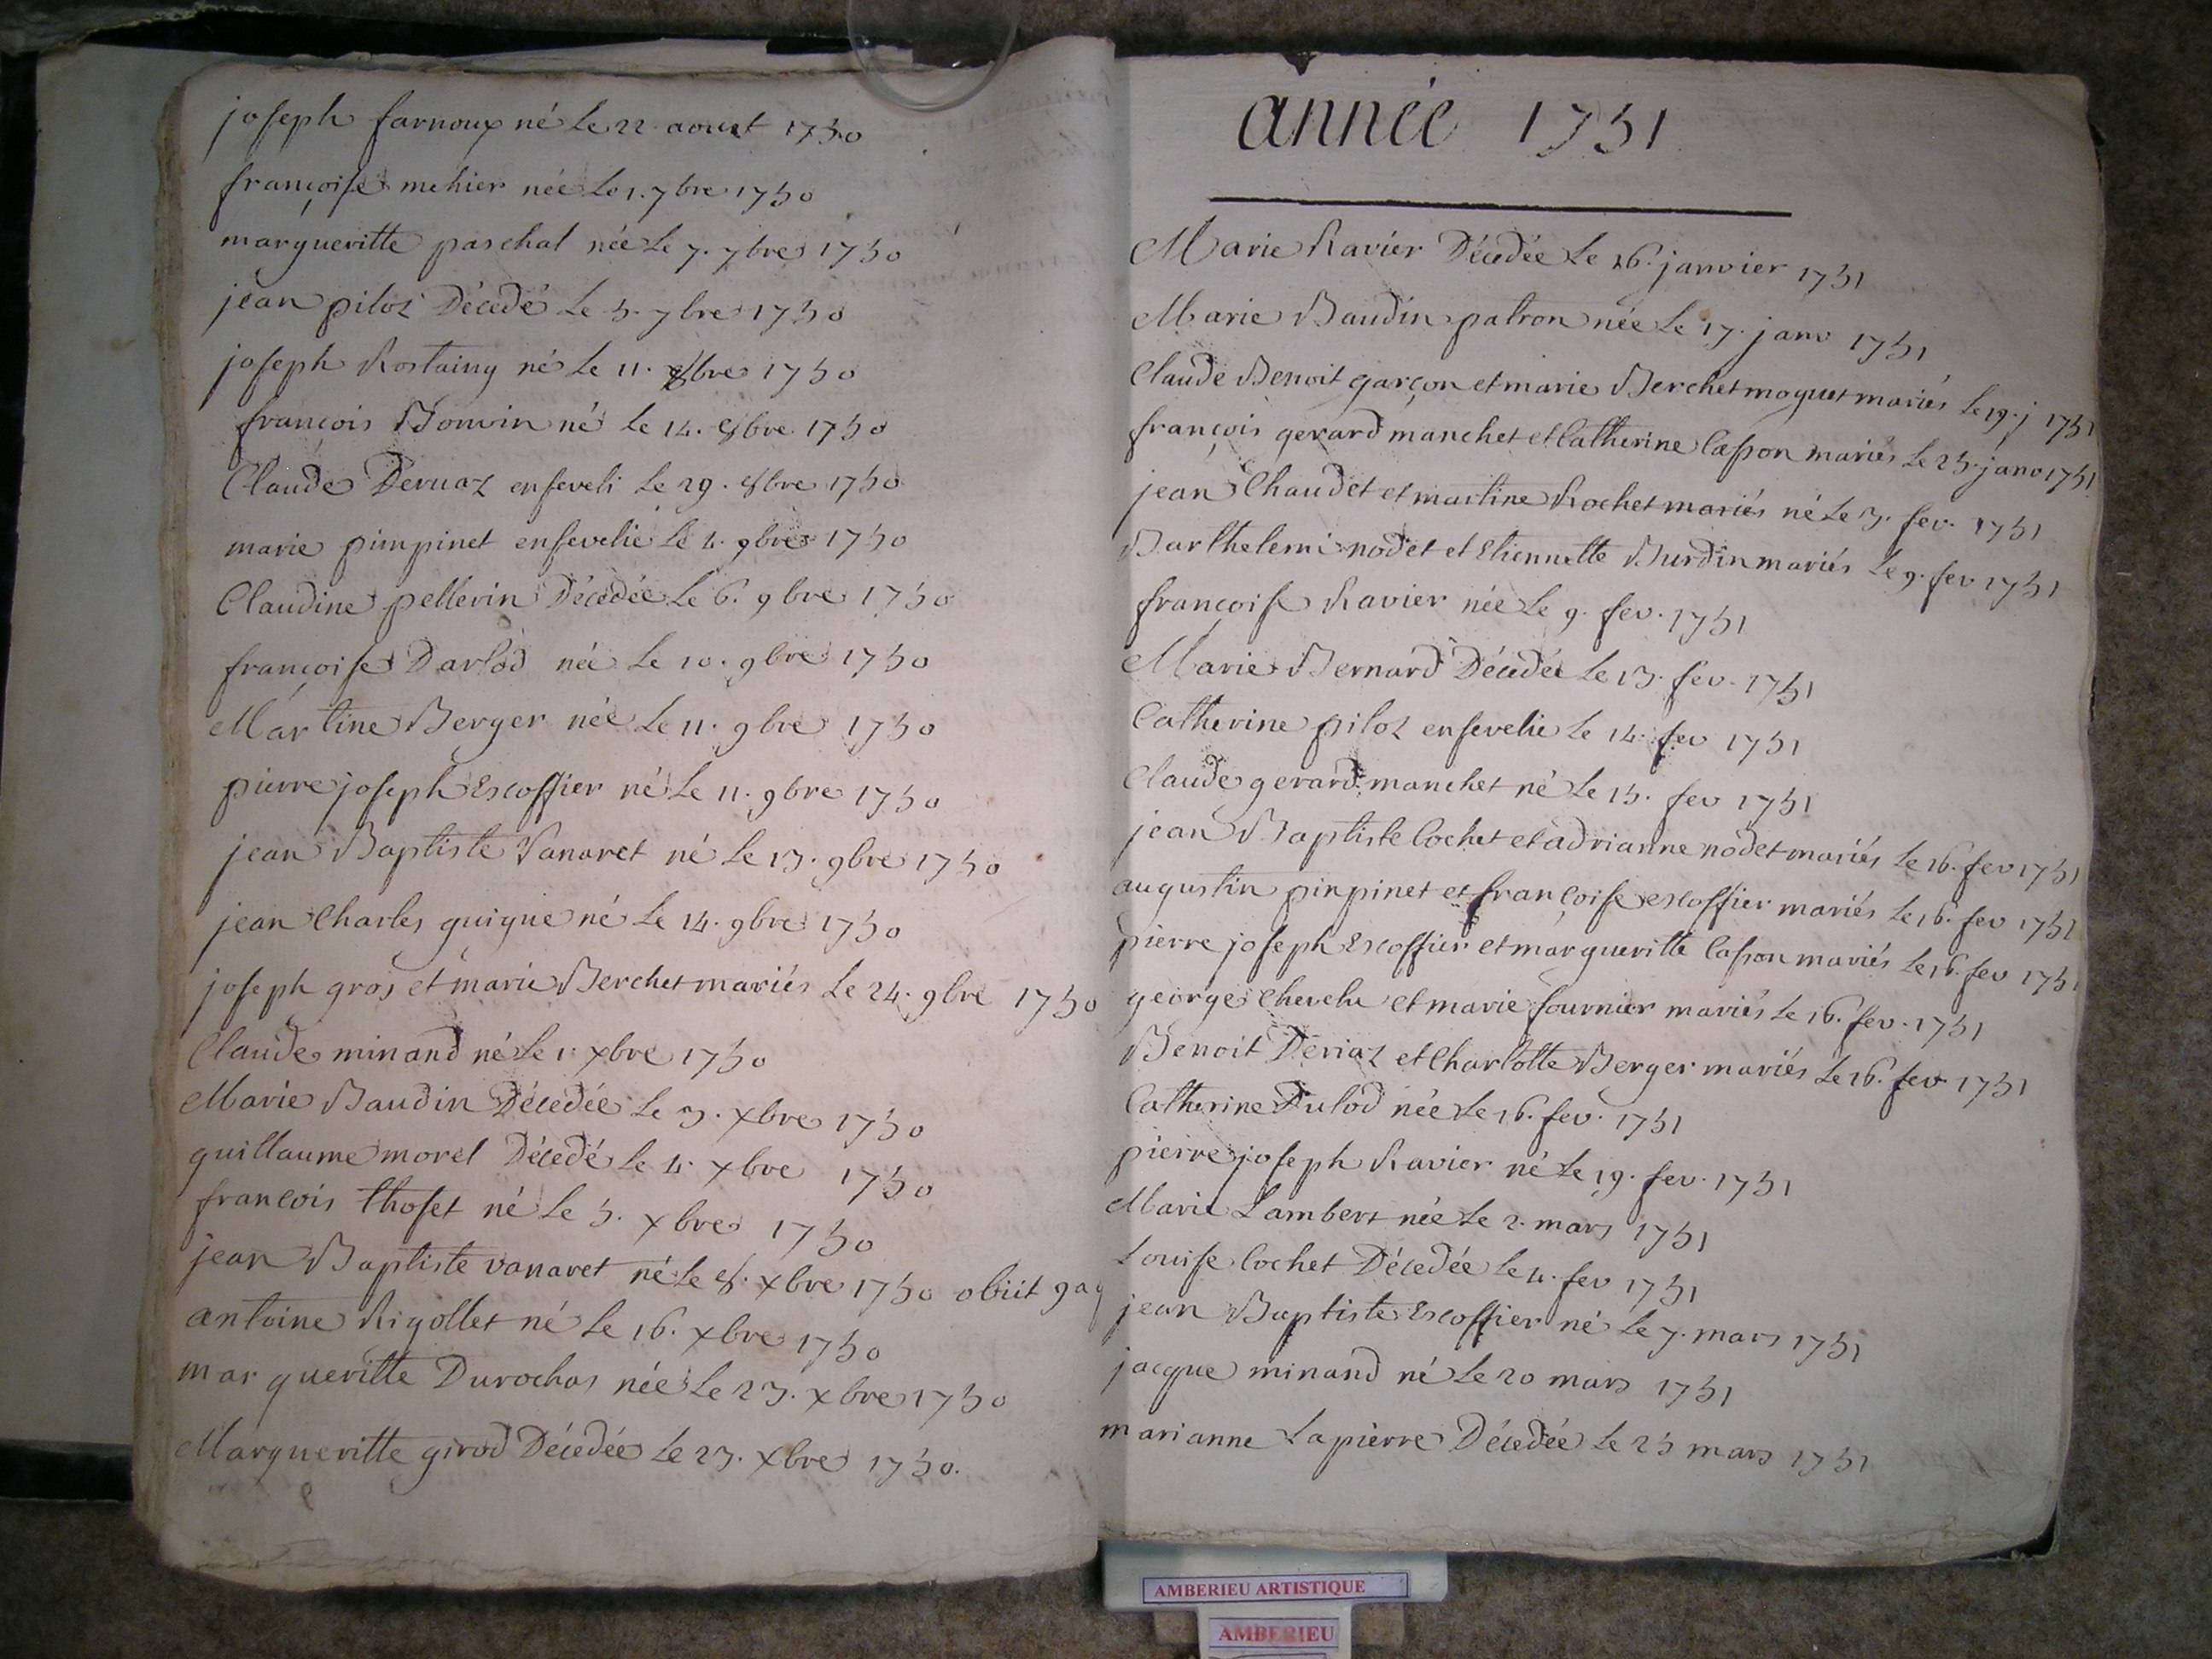 joseph farnoux né le 22 aoust 1750
françoise mehier née le 1. 7bre 1750
margueritte paschal née le 7. 7bre 1750
jean piloz Décedé le 5. 7bre 1750
joseph Rostaing né le 11. 8bre 1750
françois Bonvin né le 14. 8bre 1750
Claude Deruaz enseveli le 29. 8bre 1750
marie pimpinet ensevelie le 4. 9bre 1750
Claudine pellerin Décedée le 6. 9bre 1750
françoise Darlod née le 10. 9bre 1750
Martine Berger née le 11. 9bre 1750
pierre joseph Escoffier né le 11. 9bre 1750
jean Baptiste Vanaret né le 13. 9bre 1750
jean Charles guigue né le 14. 9bre 1750
joseph gros et marie Berchet mariés le 24. 9bre 1750
Claude minand né le 1. xbre 1750
Marie Baudin Décedée le 3. xbre 1750
guillaume morel Décedé le 4. xbre 1750
francois thoset né le 5. xbre 1750
jean Baptiste vanaret né le 8. xbre 1750 obiit
antoine Rigollet né le 16. xbre 1750
margueritte Durochas née le 23. xbre 1750
Margueritte girod Décedée le 23. xbre 1750.
année 1751
Marie Ravier Décedée le 16. janvier 1751
Marie Baudin patron née le 17. janv 1751
Claude Benoit garçon et marie Berchet moquet mariés le 19. j 1751
françois gerard manchet et Catherine Casson mariés le 25. janv 1751
jean Chaudet et martine Rochet mariés né le 3. fev. 1751
Barthelemi nodet et Etiennette Burdin mariés le 9. fev 1751
françoise Ravier née le 9. fev. 1751
Marie Bernard Décedée le 13. fev. 1751
Catherine piloz ensevelie le 14. fev 1751
Claude gerard manchet né le 15. fev 1751
jean Baptiste Cochet et adrianne nodet mariés le 16. fev 1751
augustin pinpinet et françoise escoffier mariés le 16. fev 1751
pierre joseph Escoffier et margueritte Casson mariés le 16. fev 1751
george chevelu et marie fournier mariés le 16. fev. 1751
Benoit Deriaz et Charlotte Berger mariés le 16. fev. 1751
Catherine Dulod née le 16. fev. 1751
pierre joseph Ravier né le 19. fev. 1751
Marie Lambert née le 2. mars 1751
Louise Cochet Décedée le 4. fev 1751
jean Baptiste Escoffier né le 7. mars 1751
jacque minand né le 20 mars 1751
marianne Lapierre Décedée le 25 mars 1751
AMBERIEU ARTISTIQUE
AMBERIEU